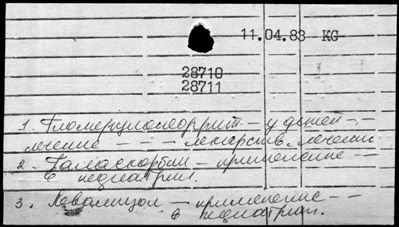 11.04.83 - KG
28710
28711
1. Гломерулонефрит - у детей -
лечение - - - лекарств. лечении
2. Галаскорбин - применение - -
в педиатрии.
3. Левамизол - применение - -
в педиатрии.